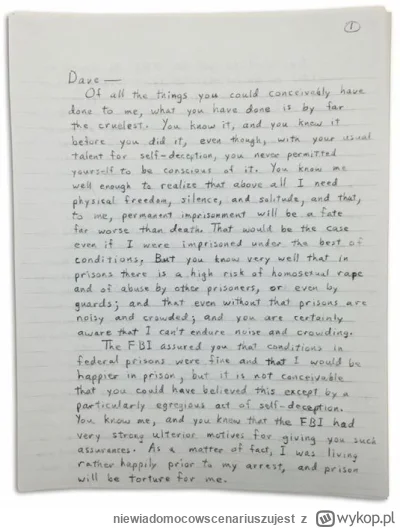 1
Dave —
Of all the things you could conceivably have
done to me, what you have done is by far
the cruelest. You know it, and you knew it
before you did it, even though, with your usual
talent for self-deception, you never permitted
yourself to be conscious of it. You know me
well enough to realize that above all I need
physical freedom, silence, and solitude, and that,
to me, permanent imprisonment will be a fate
far worse than death. That would be the case
even if I were imprisoned under the best of
conditions. But you know very well that in
prisons there is a high risk of homosexual rape
and of abuse by other prisoners, or even by
guards; and that even without that prisons are
noisy and crowded; and you are certainly
aware that I can't endure noise and crowding.
The FBI assured you that conditions in
federal prisons were fine and that I would be
happier in prison, but it is not conceivable
that you could have believed this except by a
particularly egregious act of self-deception.
You know me, and you know that the FBI had
very strong ulterior motives for giving you such
assurances. As a matter of fact, I was living
rather happily prior to my arrest, and prison
will be torture for me.
niewiadomocowscenariuszujest z wykop.pl